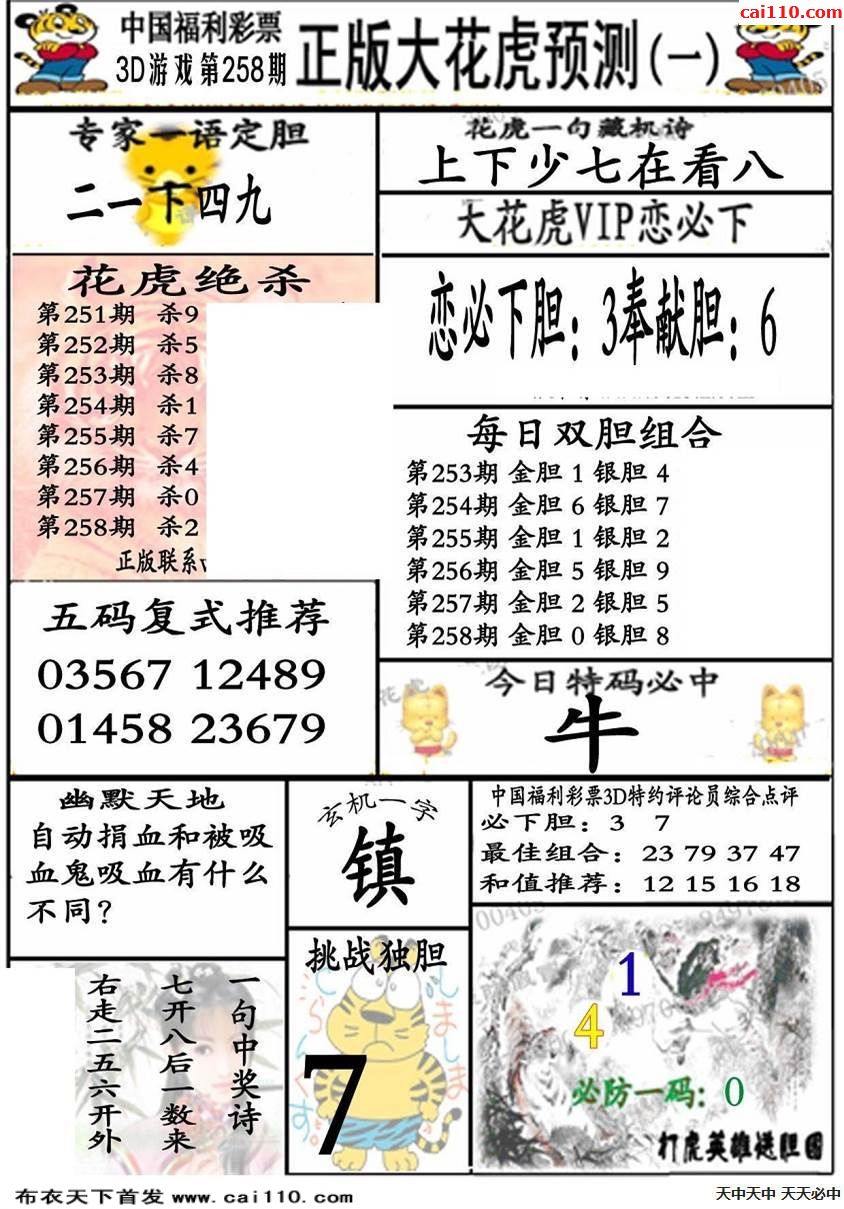 cai110.com
中国福利彩票
3D游戏第258期
正版大花虎预测(一)
专家一语定胆
二一下四九
花虎一句藏机诗
上下少七在看八
大花虎VIP恋必下
恋必下胆：3奉献胆：6
花虎绝杀
第251期 杀9
第252期 杀5
第253期 杀8
第254期 杀1
第255期 杀7
第256期 杀4
第257期 杀0
第258期 杀2
正版联系
每日双胆组合
第253期 金胆 1 银胆 4
第254期 金胆 6 银胆 7
第255期 金胆 1 银胆 2
第256期 金胆 5 银胆 9
第257期 金胆 2 银胆 5
第258期 金胆 0 银胆 8
五码复式推荐
03567 12489
01458 23679
今日特码必中
牛
幽默天地
自动捐血和被吸
血鬼吸血有什么
不同？
玄机一字
镇
中国福利彩票3D特约评论员综合点评
必下胆：3 7
最佳组合：23 79 37 47
和值推荐：12 15 16 18
一句中奖诗
七开八后一数来
右走二五六开外
挑战独胆
7
1
4
必防一码：0
打虎英雄送胆图
布衣天下首发 www.cai110.com
天中天中 天天必中